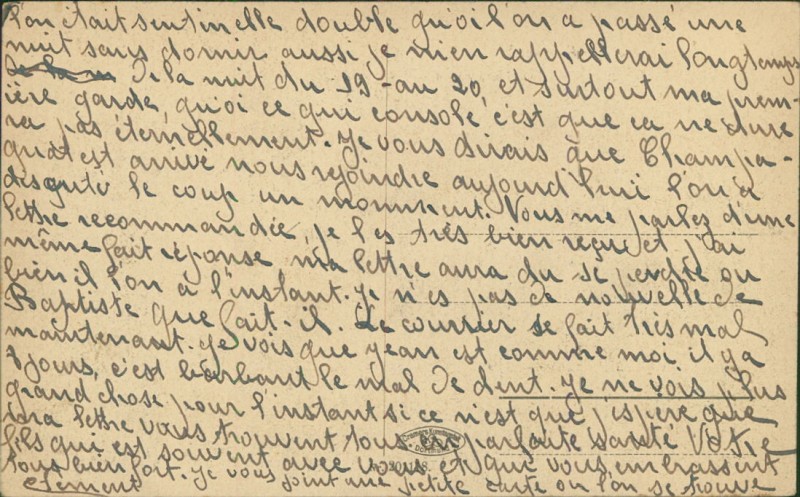 l'on était sentinelle double qu'oi l'on a passé une
nuit sans dormir aussi je m'en rappellerai longtemps
De la nuit du 19 au 20, et surtout ma prem-
ière garde, qu'oi ce qui console, c'est que ca ne dure
ra pas éternellement. Je vous dirais que Champa-
gnat est arrivé nous rejoindre aujourd'hui l'on a
discuté le coup un moment. Vous me parlez d'une
lettre recommandée, je les très bien reçue et j'ai
même fait réponse ma lettre aura du se perdre ou
bien il l'on a l'instant. Je n'es pas de nouvelle de
Baptiste que fait-il. Le courrier se fait très mal
maintenant. Je vois que Jean est comme moi il y a
8 jours, c'est barbant le mal de dent. Je ne vois plus
grand chose pour l'instant si ce n'est que j'espere que
ma lettre vous trouvent tous en parfaite santé Votre
fils qui est souvent avec vous et qui vous embrassent
tous bien fort. Je vous joint une petite carte ou l'on se trouve
Clément